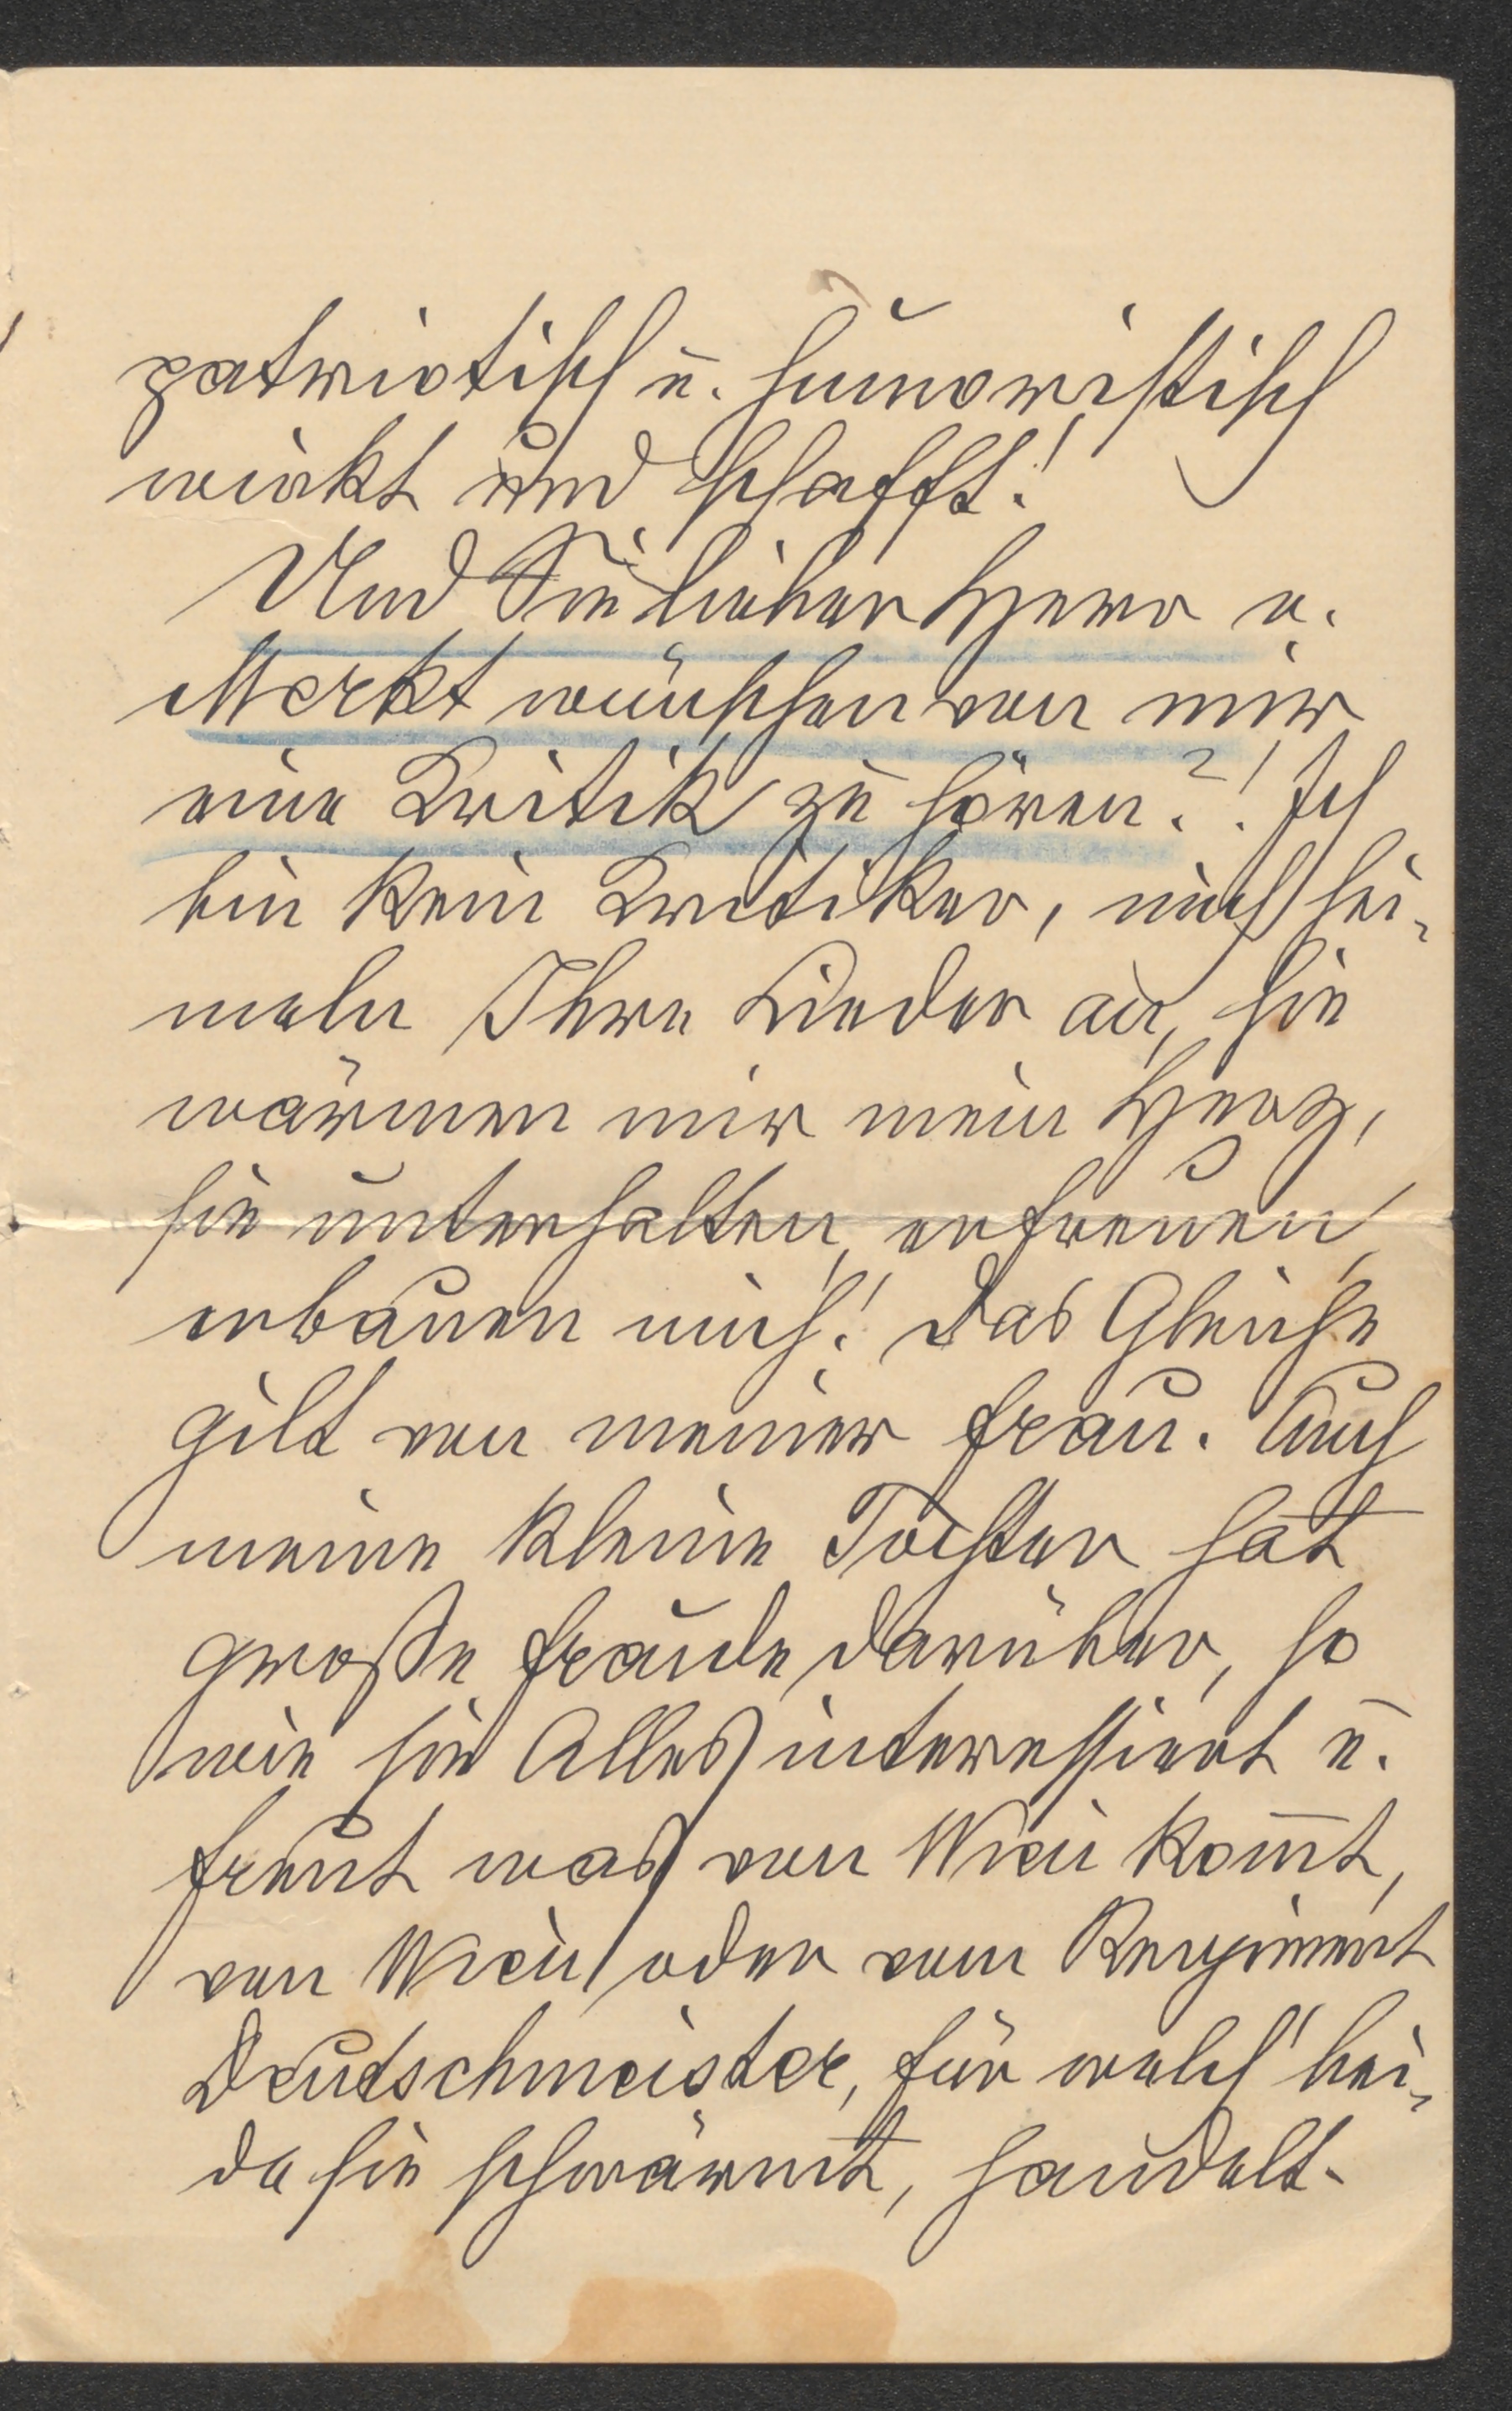 patriotisch u. humoristisch
wirkt und schafft!
Und Sie lieber Herr v.
Merkt wünschen von mir
eine Kritik zu hören?! Ich
bin kein Kritiker, mich hei-
meln Ihre Lieder an, sie
wärmen mir mein Herz,
sie unterhalten, erfreuen,
erbauen mich! Das Gleiche
gilt von meiner Frau. Auch
meine kleine Tochter hat
große Freude darüber, so
wie sie Alles interessiert u.
freut was von Wien kom̅t,
von Wien oder vom Regiment
Deutschmeister, für welch' bei-
de sie schwärmt, handelt.